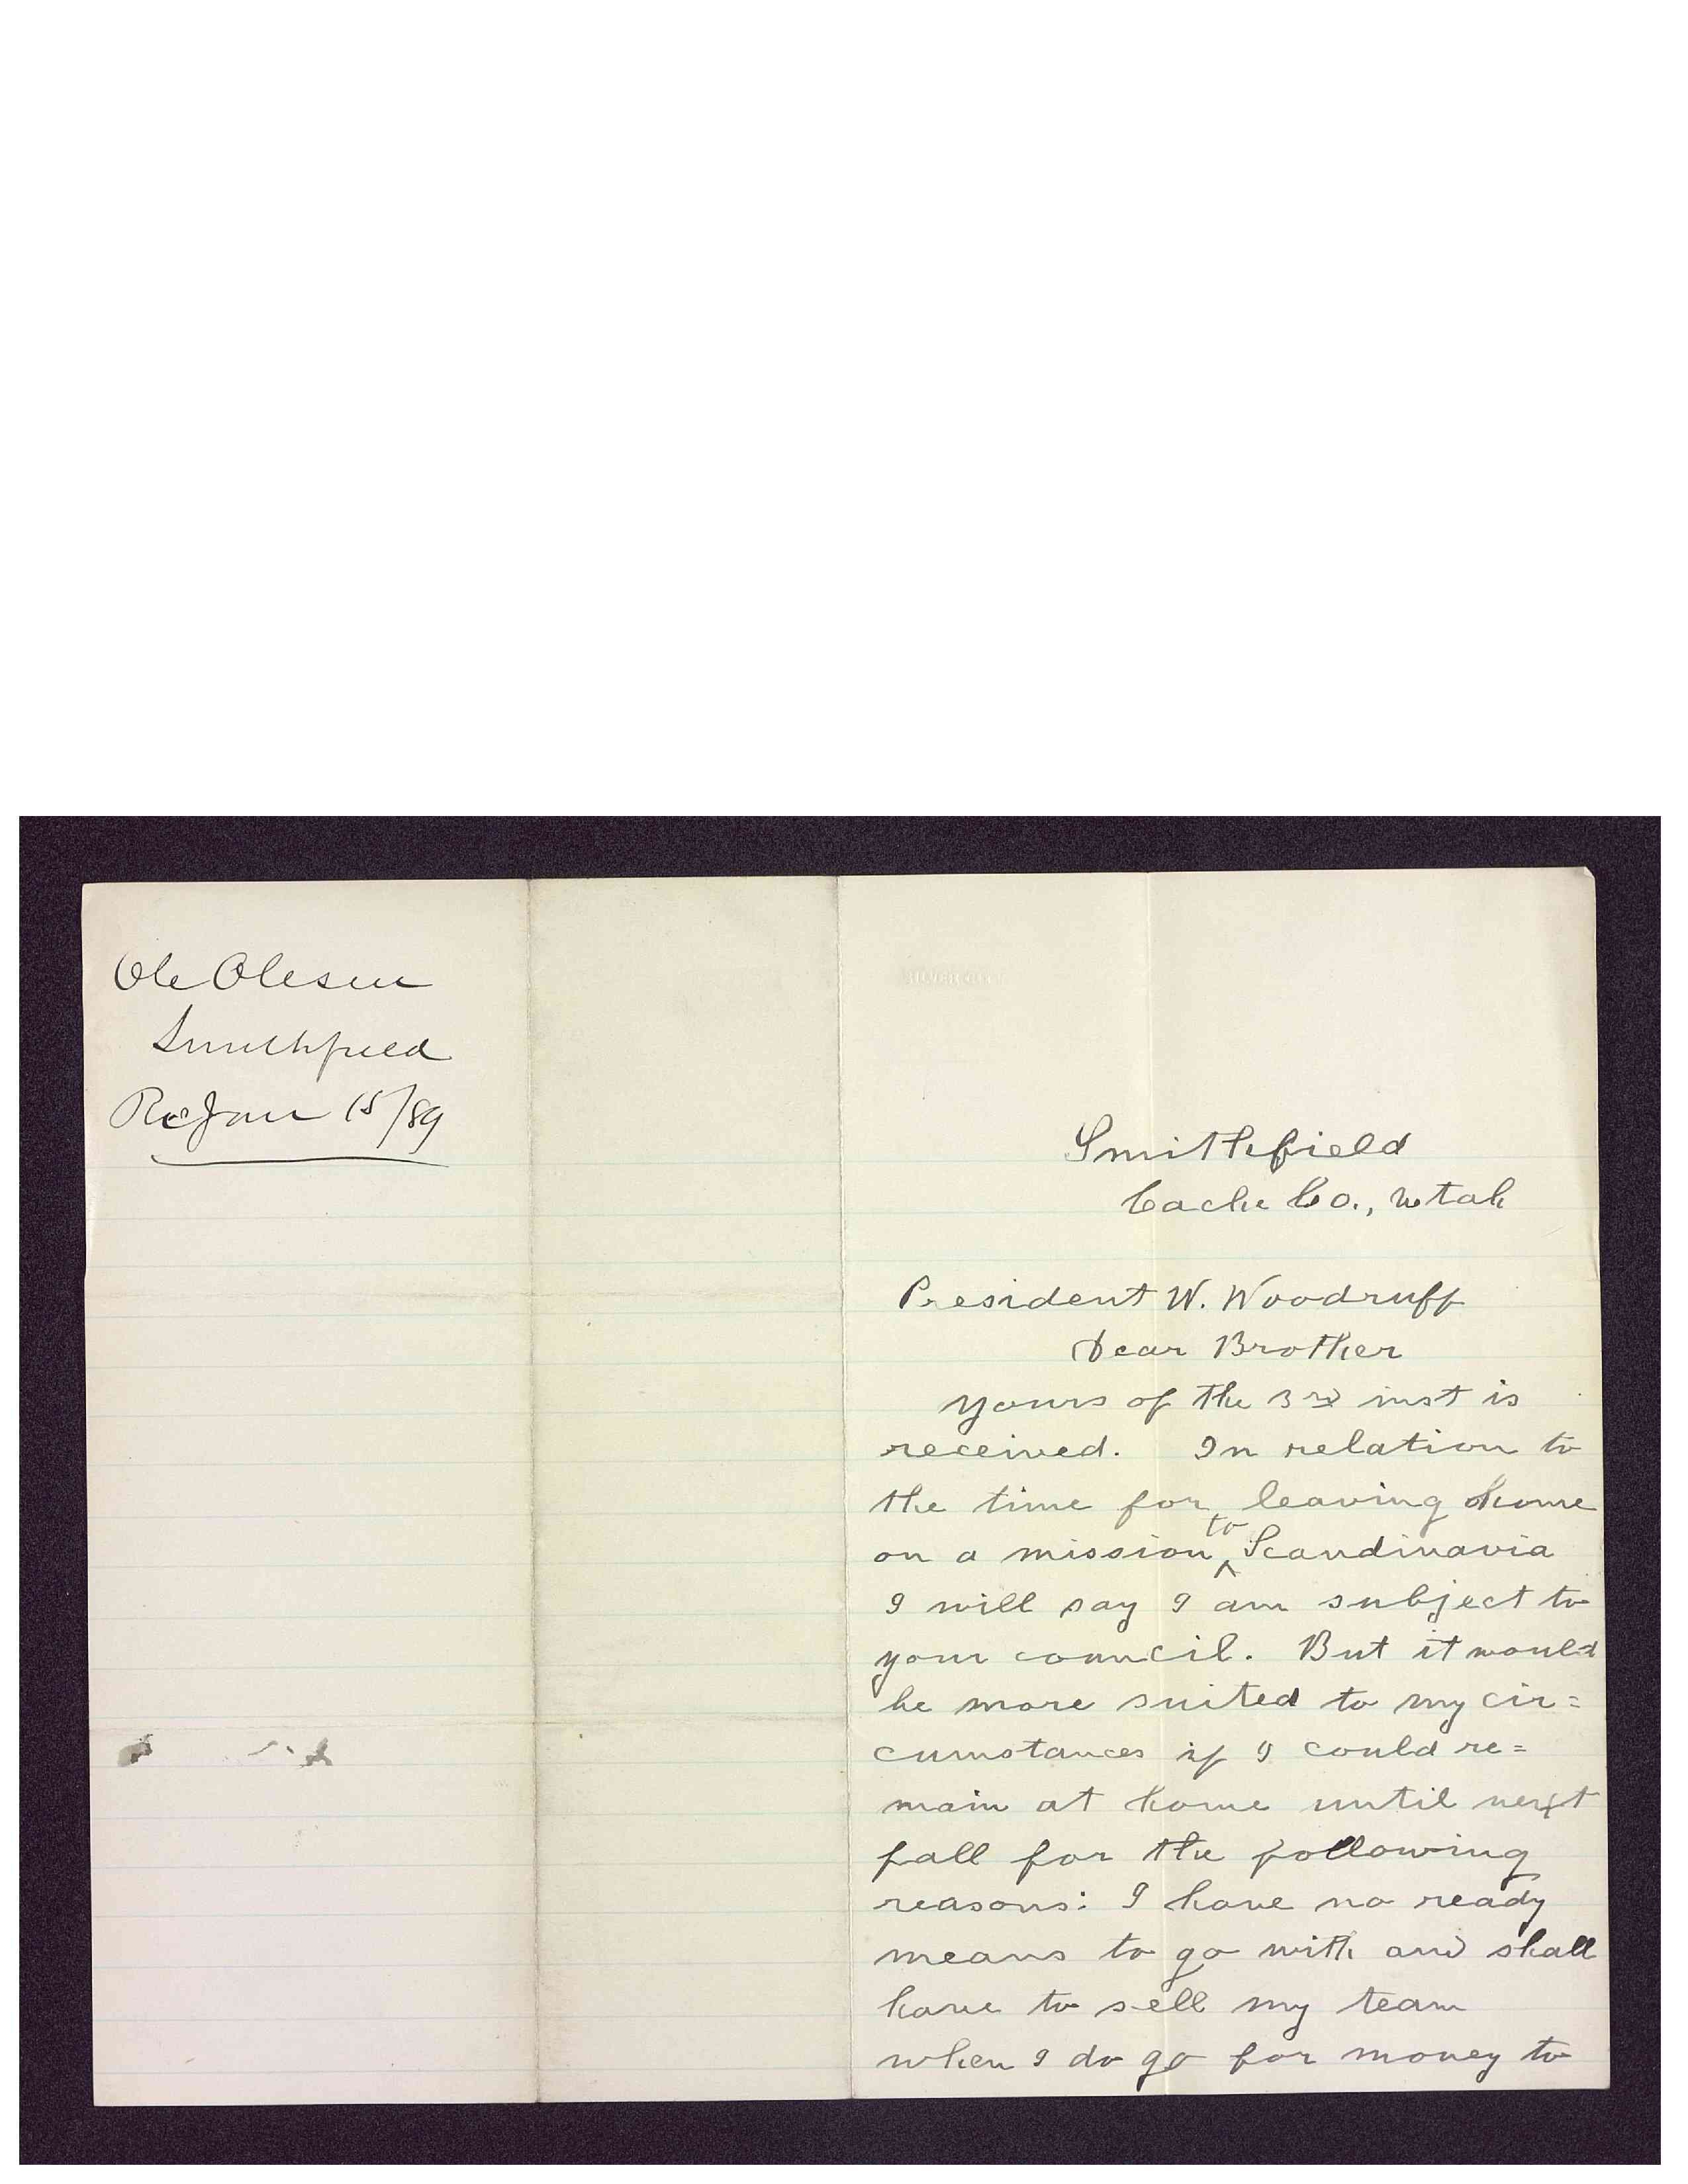 Ole Olesen
Smithfield
Rec Jan 15/89
Smithfield
Cache Co., Utah
President W. Woodruff
Dear Brother
Yours of the 3rd inst is
received. In relation to
the time for leaving home
on a mission to Scandinavia
I will say I am subject to
your council. But it would
be more suited to my cir=
cumstances if I could re=
main at home until next
fall for the following
reasons: I have no ready
means to go with and shall
have to sell my team
when I do go for money to